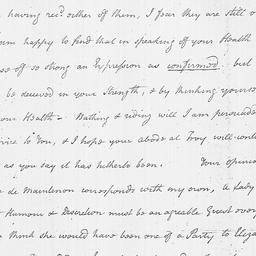 having rec'd either of them, I fear they are still o
am happy to find that in speaking of your Health
use of so strong an Expression as confirmed. but
be deceived in your Strength, & by thinking yours
our Health - Bathing & riding will I am persuade
vice to You, & I hope your abode at Troy will cont
as you say it has hitherto been. Your opinio
de Maintenon corresponds with my own, & Lady
Humour & Discretion must be an agreable Guest every
think she would have been one of a Party to Eliza